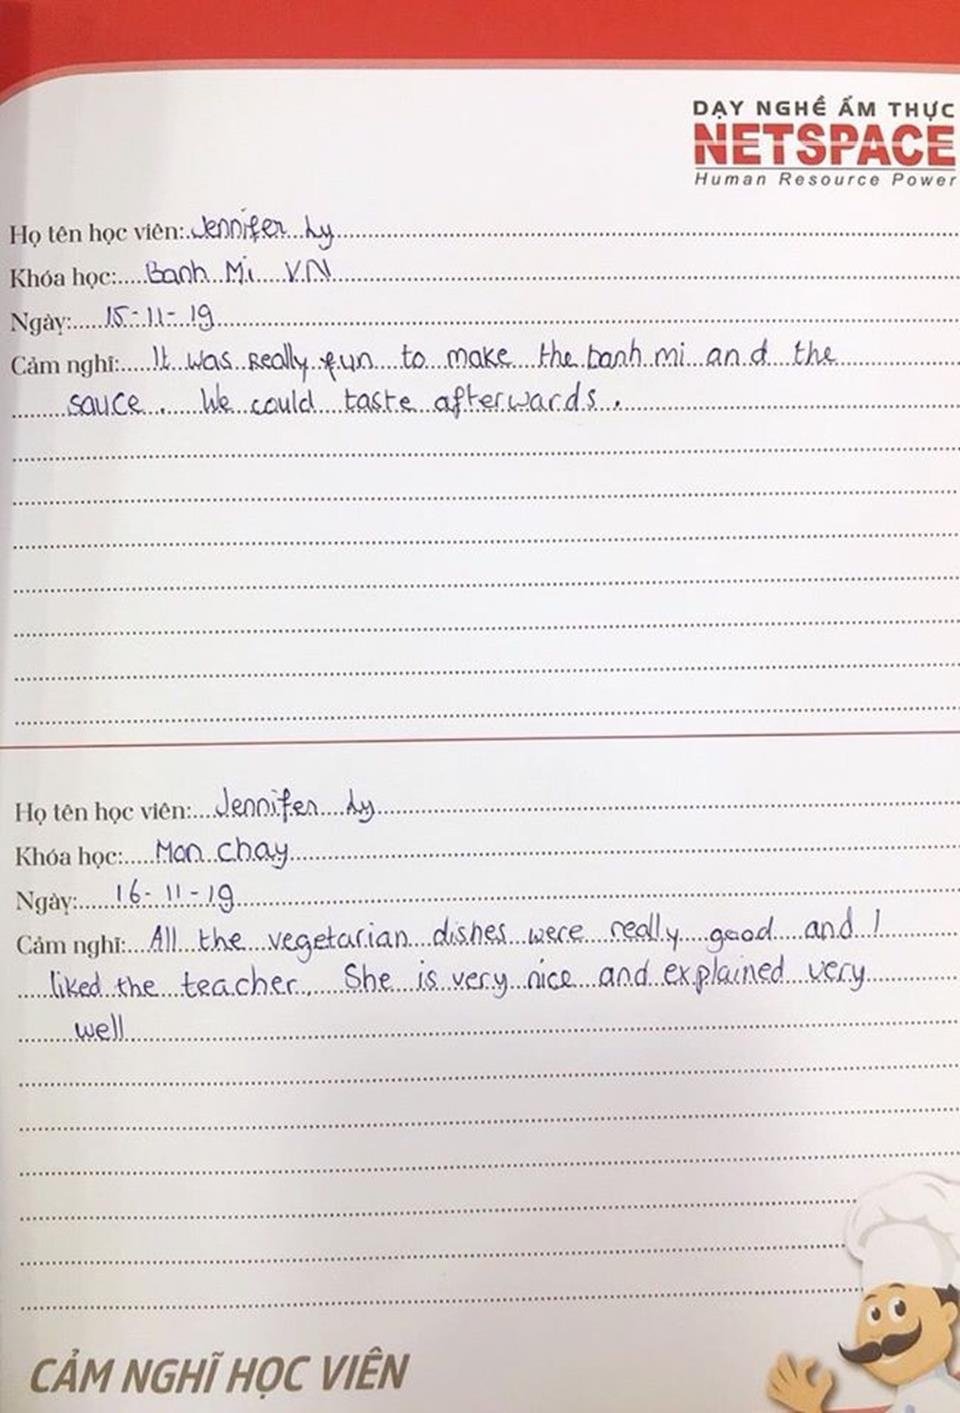 DẠY NGHỀ ẨM THỰC
NETSPACE
Human Resource Power
Họ tên học viên: Jennifer Ly
Khóa học: Banh Mi VN
Ngày: 15-11-19
Cảm nghĩ: It was really fun to make the banh mi and the
sauce. We could taste afterwards.
Họ tên học viên: Jennifer Ly
Khóa học: Mon chay
Ngày: 16-11-19
Cảm nghĩ: All the vegetarian dishes were really good and I
liked the teacher. She is very nice and explained very
well
CẢM NGHĨ HỌC VIÊN